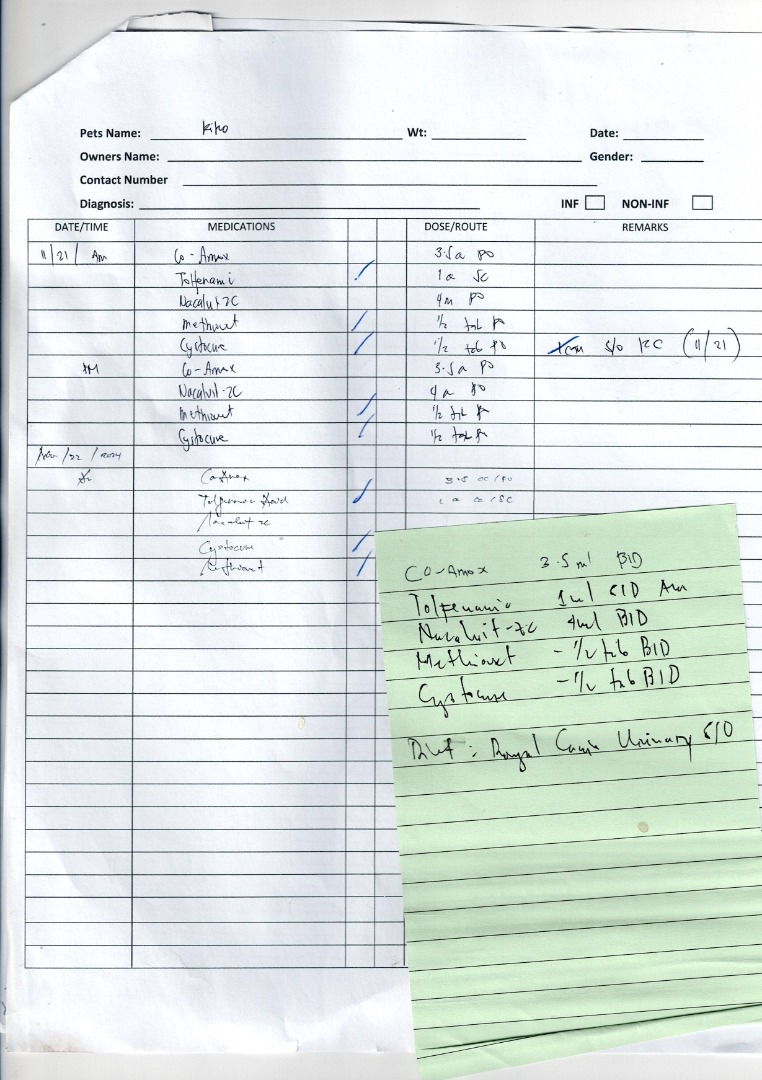 Pets Name: Kiko Wt: Date:
Owners Name: Gender:
Contact Number
Diagnosis: INF NON-INF
DATE/TIME MEDICATIONS DOSE/ROUTE REMARKS
11/21/ Am Co-Amox 3.5a po
Tolfenami 1a SC
Nacalvit-ZC 4m po
Methiovet 1/2 tab p
Cystocure 1/2 tab po s/o RC (11/21)
PM Co-Amox 3.5a po
Nacalvit-ZC 4a po
Methiovet 1/2 tab p
Cystocure 1/2 tab p
Nov/22/2024
Coamox 3.5 cc/po
Tolfenamic Acid 1 cc/SC
Nacalvit zc
Cystocure
Methiovet
Co-Amox 3.5 ml BID
Tolfenamic 1ml SID Am
Nacalvit-zc 4ml BID
Methiovet - 1/2 tab BID
Cystocure - 1/2 tab BID
Diet : Royal Canin Urinary S/O